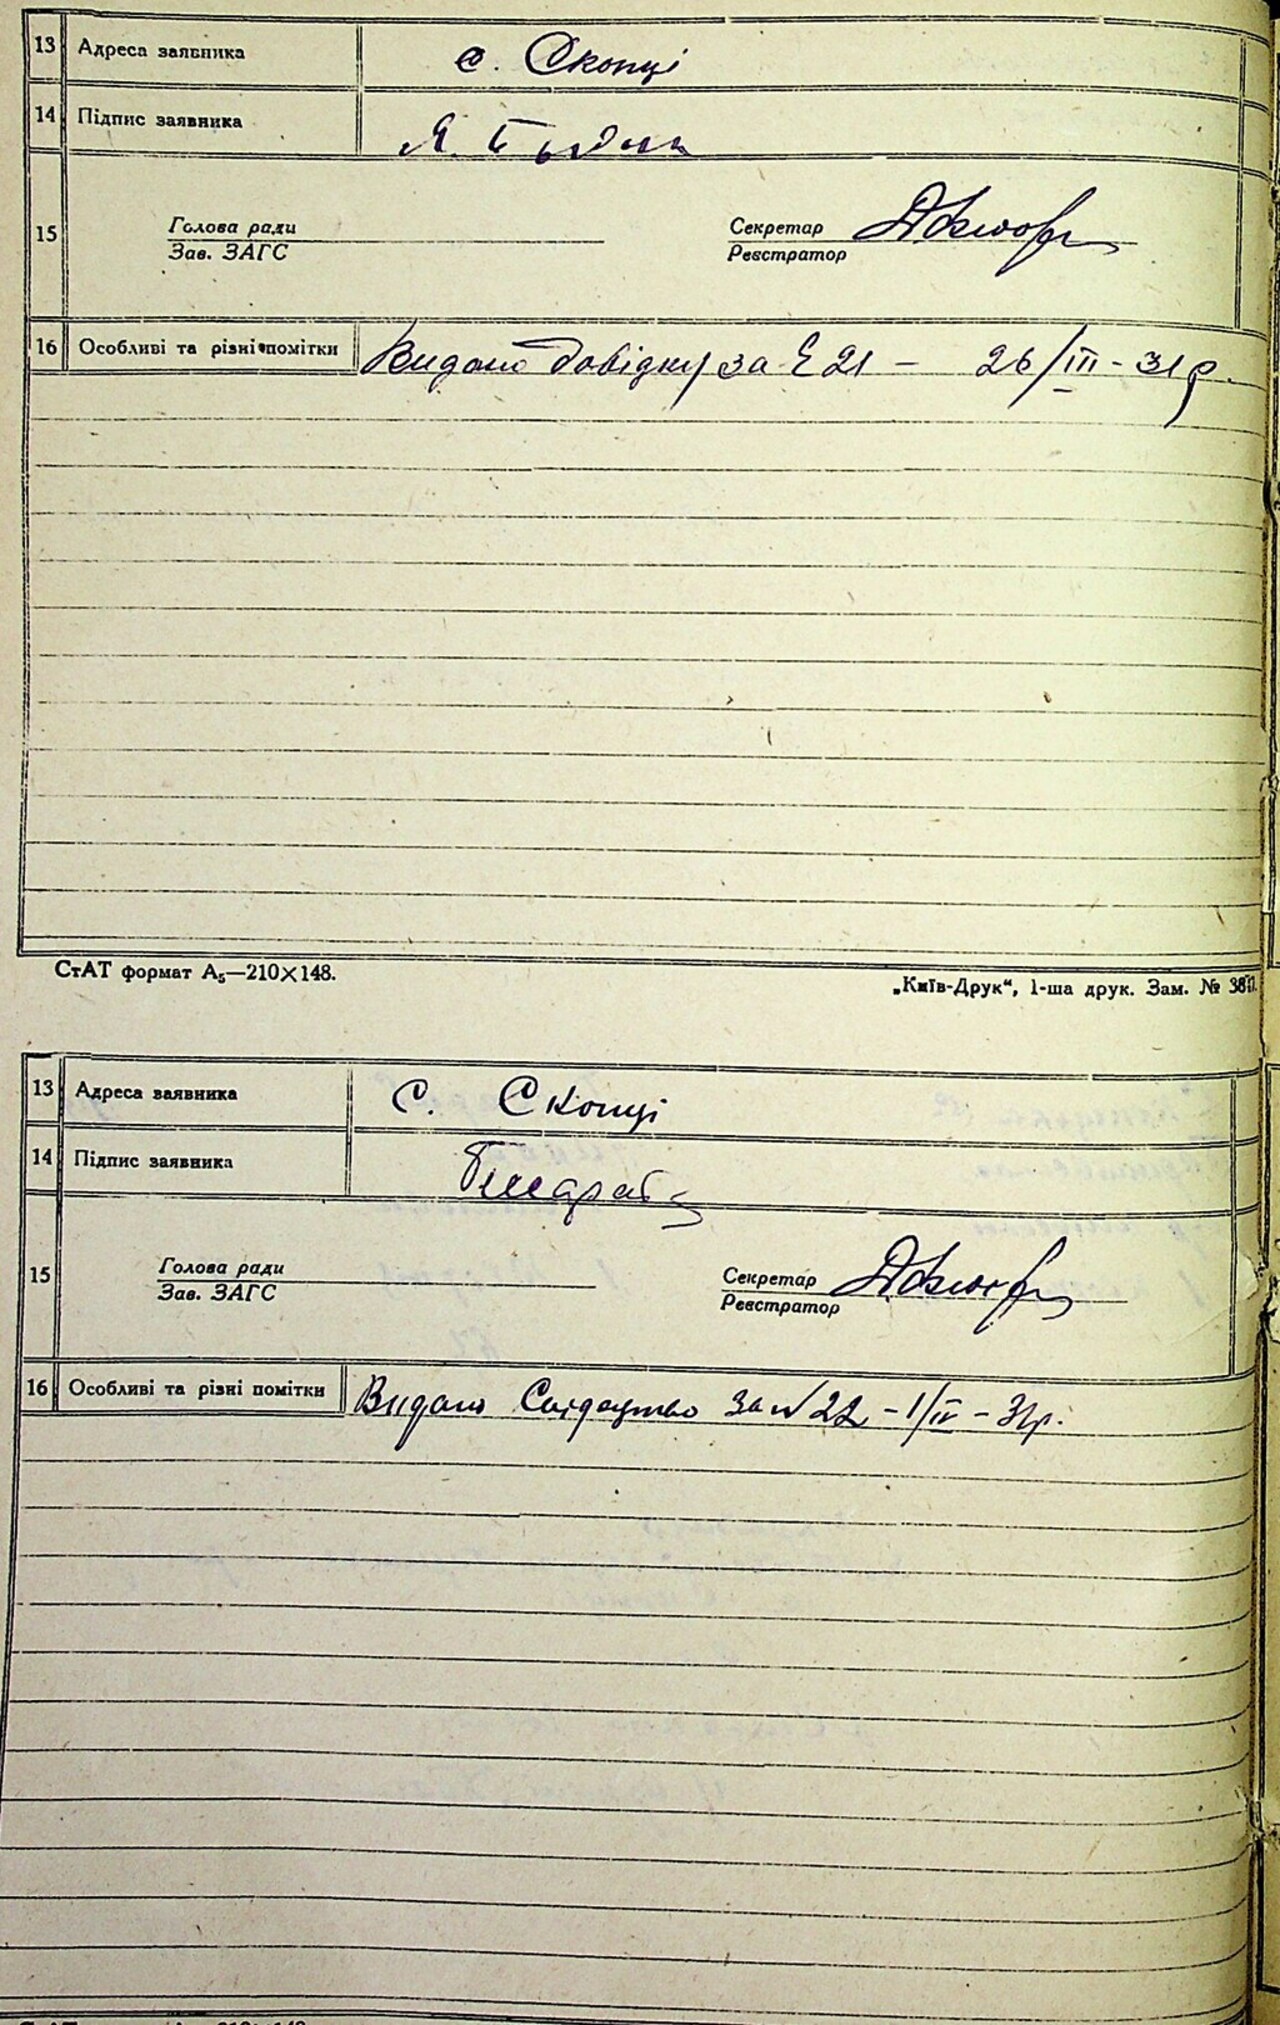 13 Адреса заявника с. Скопці
14 Підпис заявника Я.
15
Голова ради Секретар
Зав. ЗАГС Реєстратор
16 Особливі та різні помітки Видано довідку за № 21 – 26/III - 31 р.
СтАТ формат А₅—210×148. „Київ-Друк“, 1-ша друк. Зам. №
13 Адреса заявника С. Скопці
14 Підпис заявника
15
Голова ради Секретар
Зав. ЗАГС Реєстратор
16 Особливі та різні помітки Видано Свідоцтво за № 22 – 1/IV – 31р.